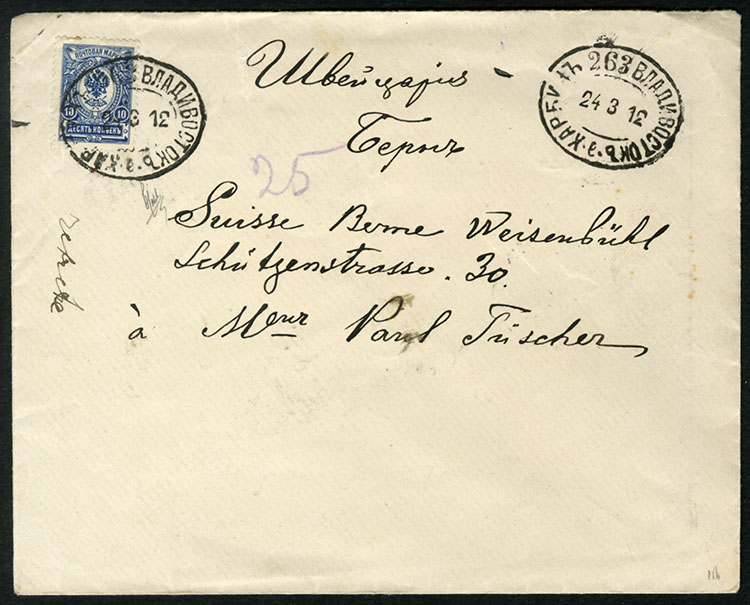 ПОЧТОВАЯ МАРКА
10 10
ДЕСЯТЬ КОПѢЕКЪ
ВЛАДИВОСТОКЪ
3 12
263 ВЛАДИВОСТОКЪ
24 3 12
Швейцарiя
Бернъ
25
Suisse Berne Weisenbühl
Schützenstrasse. 30.
à Meur Paul Tüscher